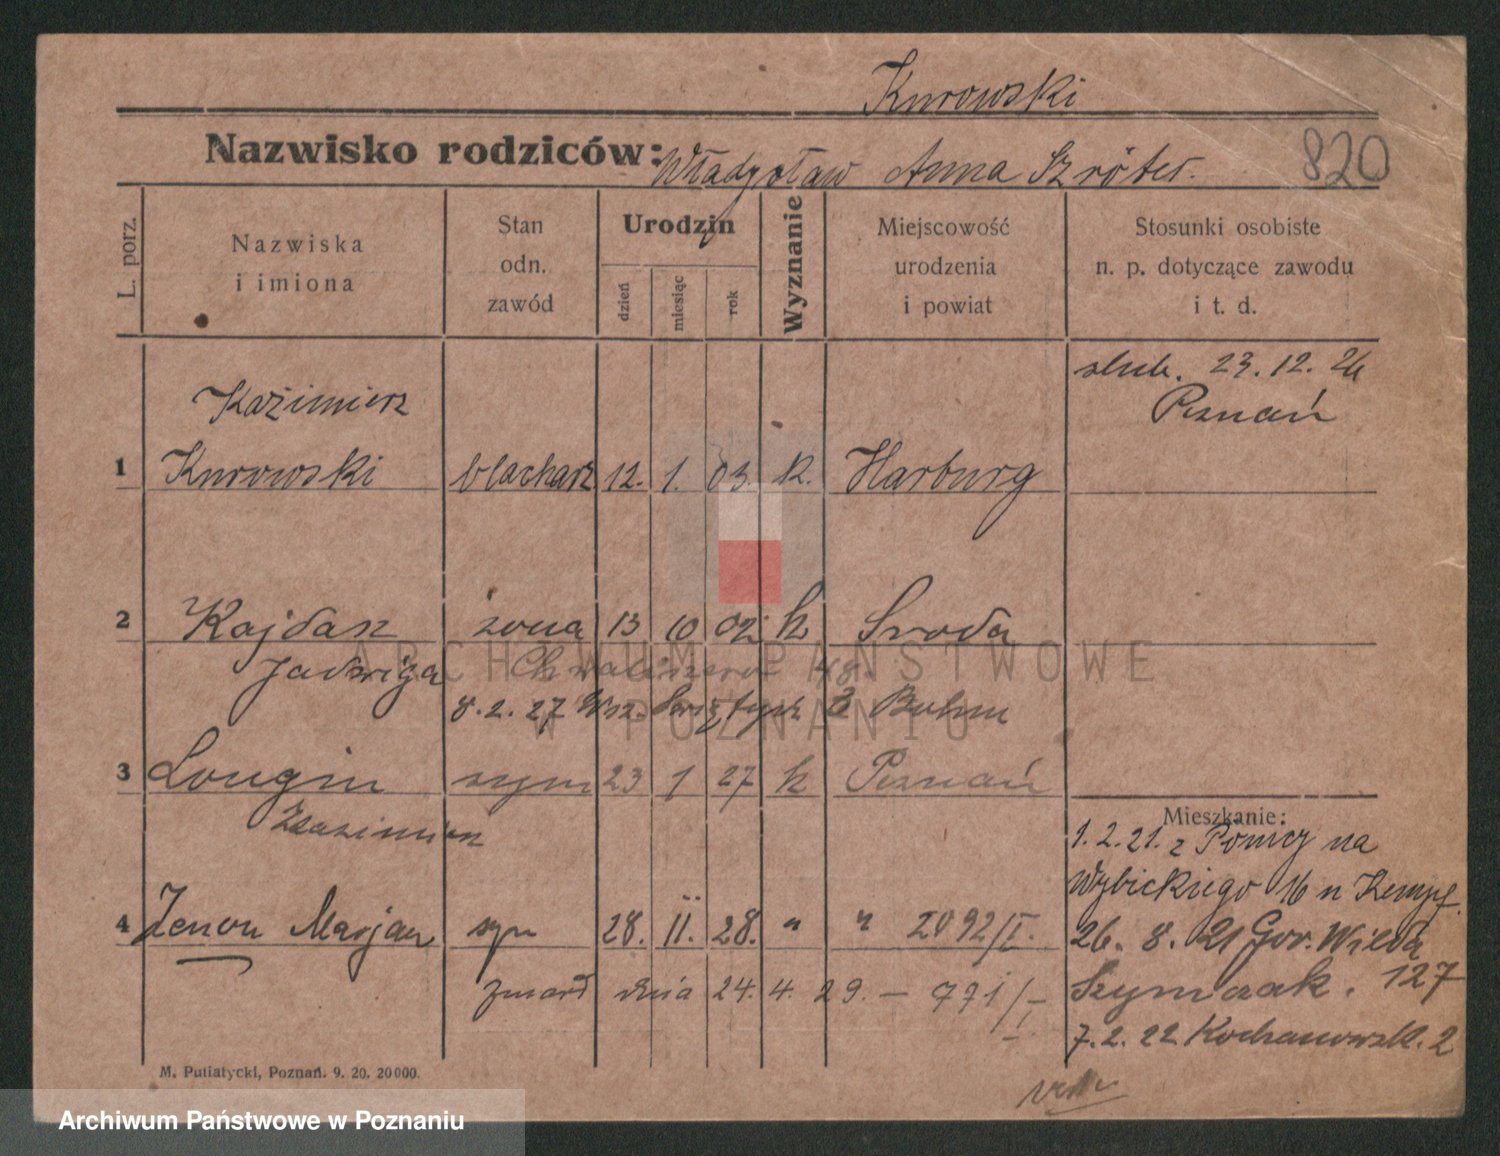 Kurowski
Nazwisko rodziców: Władysław Anna Szróter.
820
L. porz.
Nazwiska
i imiona
Stan
odn.
zawód
Urodzin
dzień
miesiąc
rok
Wyznanie
Miejscowość
urodzenia
i powiat
Stosunki osobiste
n. p. dotyczące zawodu
i t. d.
ślub. 23.12.26
Poznań
Kazimierz
1 Kurowski blacharz 12. 1. 03. K. Harburg
2 Kajdasz żona 13 10 02 k Sroda
Jadwiga 48.
8.2.27 3 Bohm
3 Longin syn 23 1 27 k Poznań
Kazimierz
Mieszkanie:
1.2.21. z na
Wybickiego 16 n Kempf.
4 Zenon Marjan syn 28. II. 28. " " 2092/I.
26. 8. 21 Gor. Wilda
127
Szymczak.
zmarł dnia 24. 4. 29. — 771/I
7.2.22 Kochanowsk. 2
M. Putiatycki, Poznań. 9. 20. 20000.
ARCHIWUM PAŃSTWOWE
W POZNANIU
Archiwum Państwowe w Poznaniu